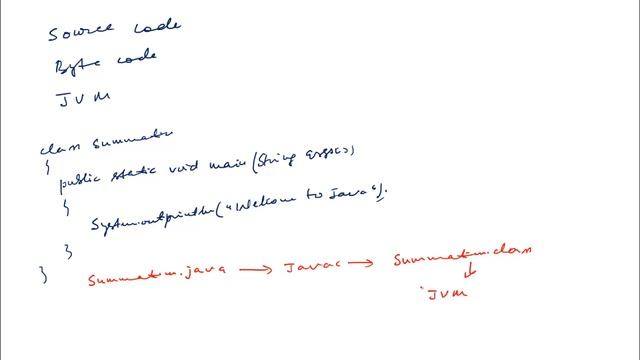 Source code
Byte code
JVM
class Summation
{
public static void main(String args[])
{
System.out.println("Welcome to Java");
}
}
Summation.java → Javac → Summation.class
↓
JVM